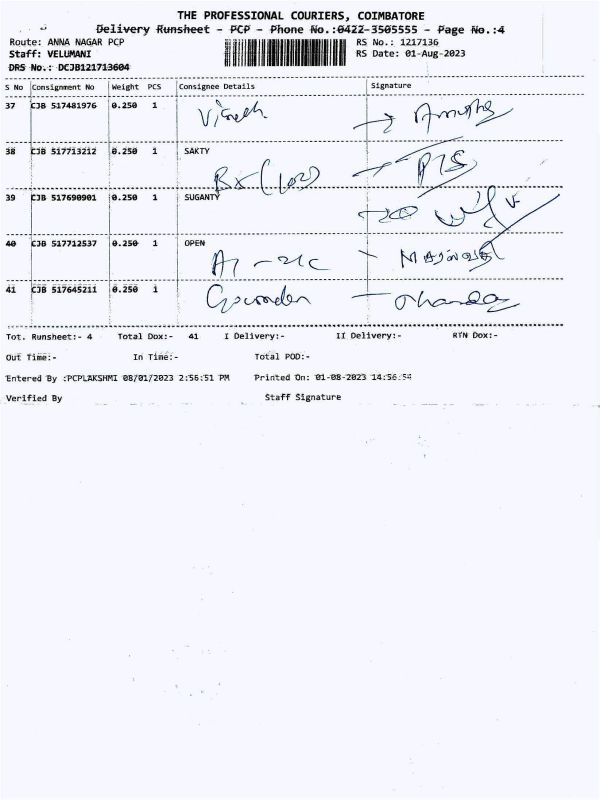 THE PROFESSIONAL COURIERS, COIMBATORE
Delivery Runsheet - PCP - Phone No.:0422-3505555 - Page No.:4
Route: ANNA NAGAR PCP RS No.: 1217136
Staff: VELUMANI RS Date: 01-Aug-2023
DRS No.: DCJB121713604
S No Consignment No Weight PCS Consignee Details Signature
37 CJB 517481976 0.250 1
38 CJB 517713212 0.250 1 SAKTY
39 CJB 517690901 0.250 1 SUGANTY
40 CJB 517712537 0.250 1 OPEN
41 CJB 517645211 0.250 1
Tot. Runsheet:- 4 Total Dox:- 41 I Delivery:- II Delivery:- RTN Dox:-
Out Time:- In Time:- Total POD:-
Entered By :PCPLAKSHMI 08/01/2023 2:56:51 PM Printed On: 01-08-2023 14:56:54
Verified By Staff Signature